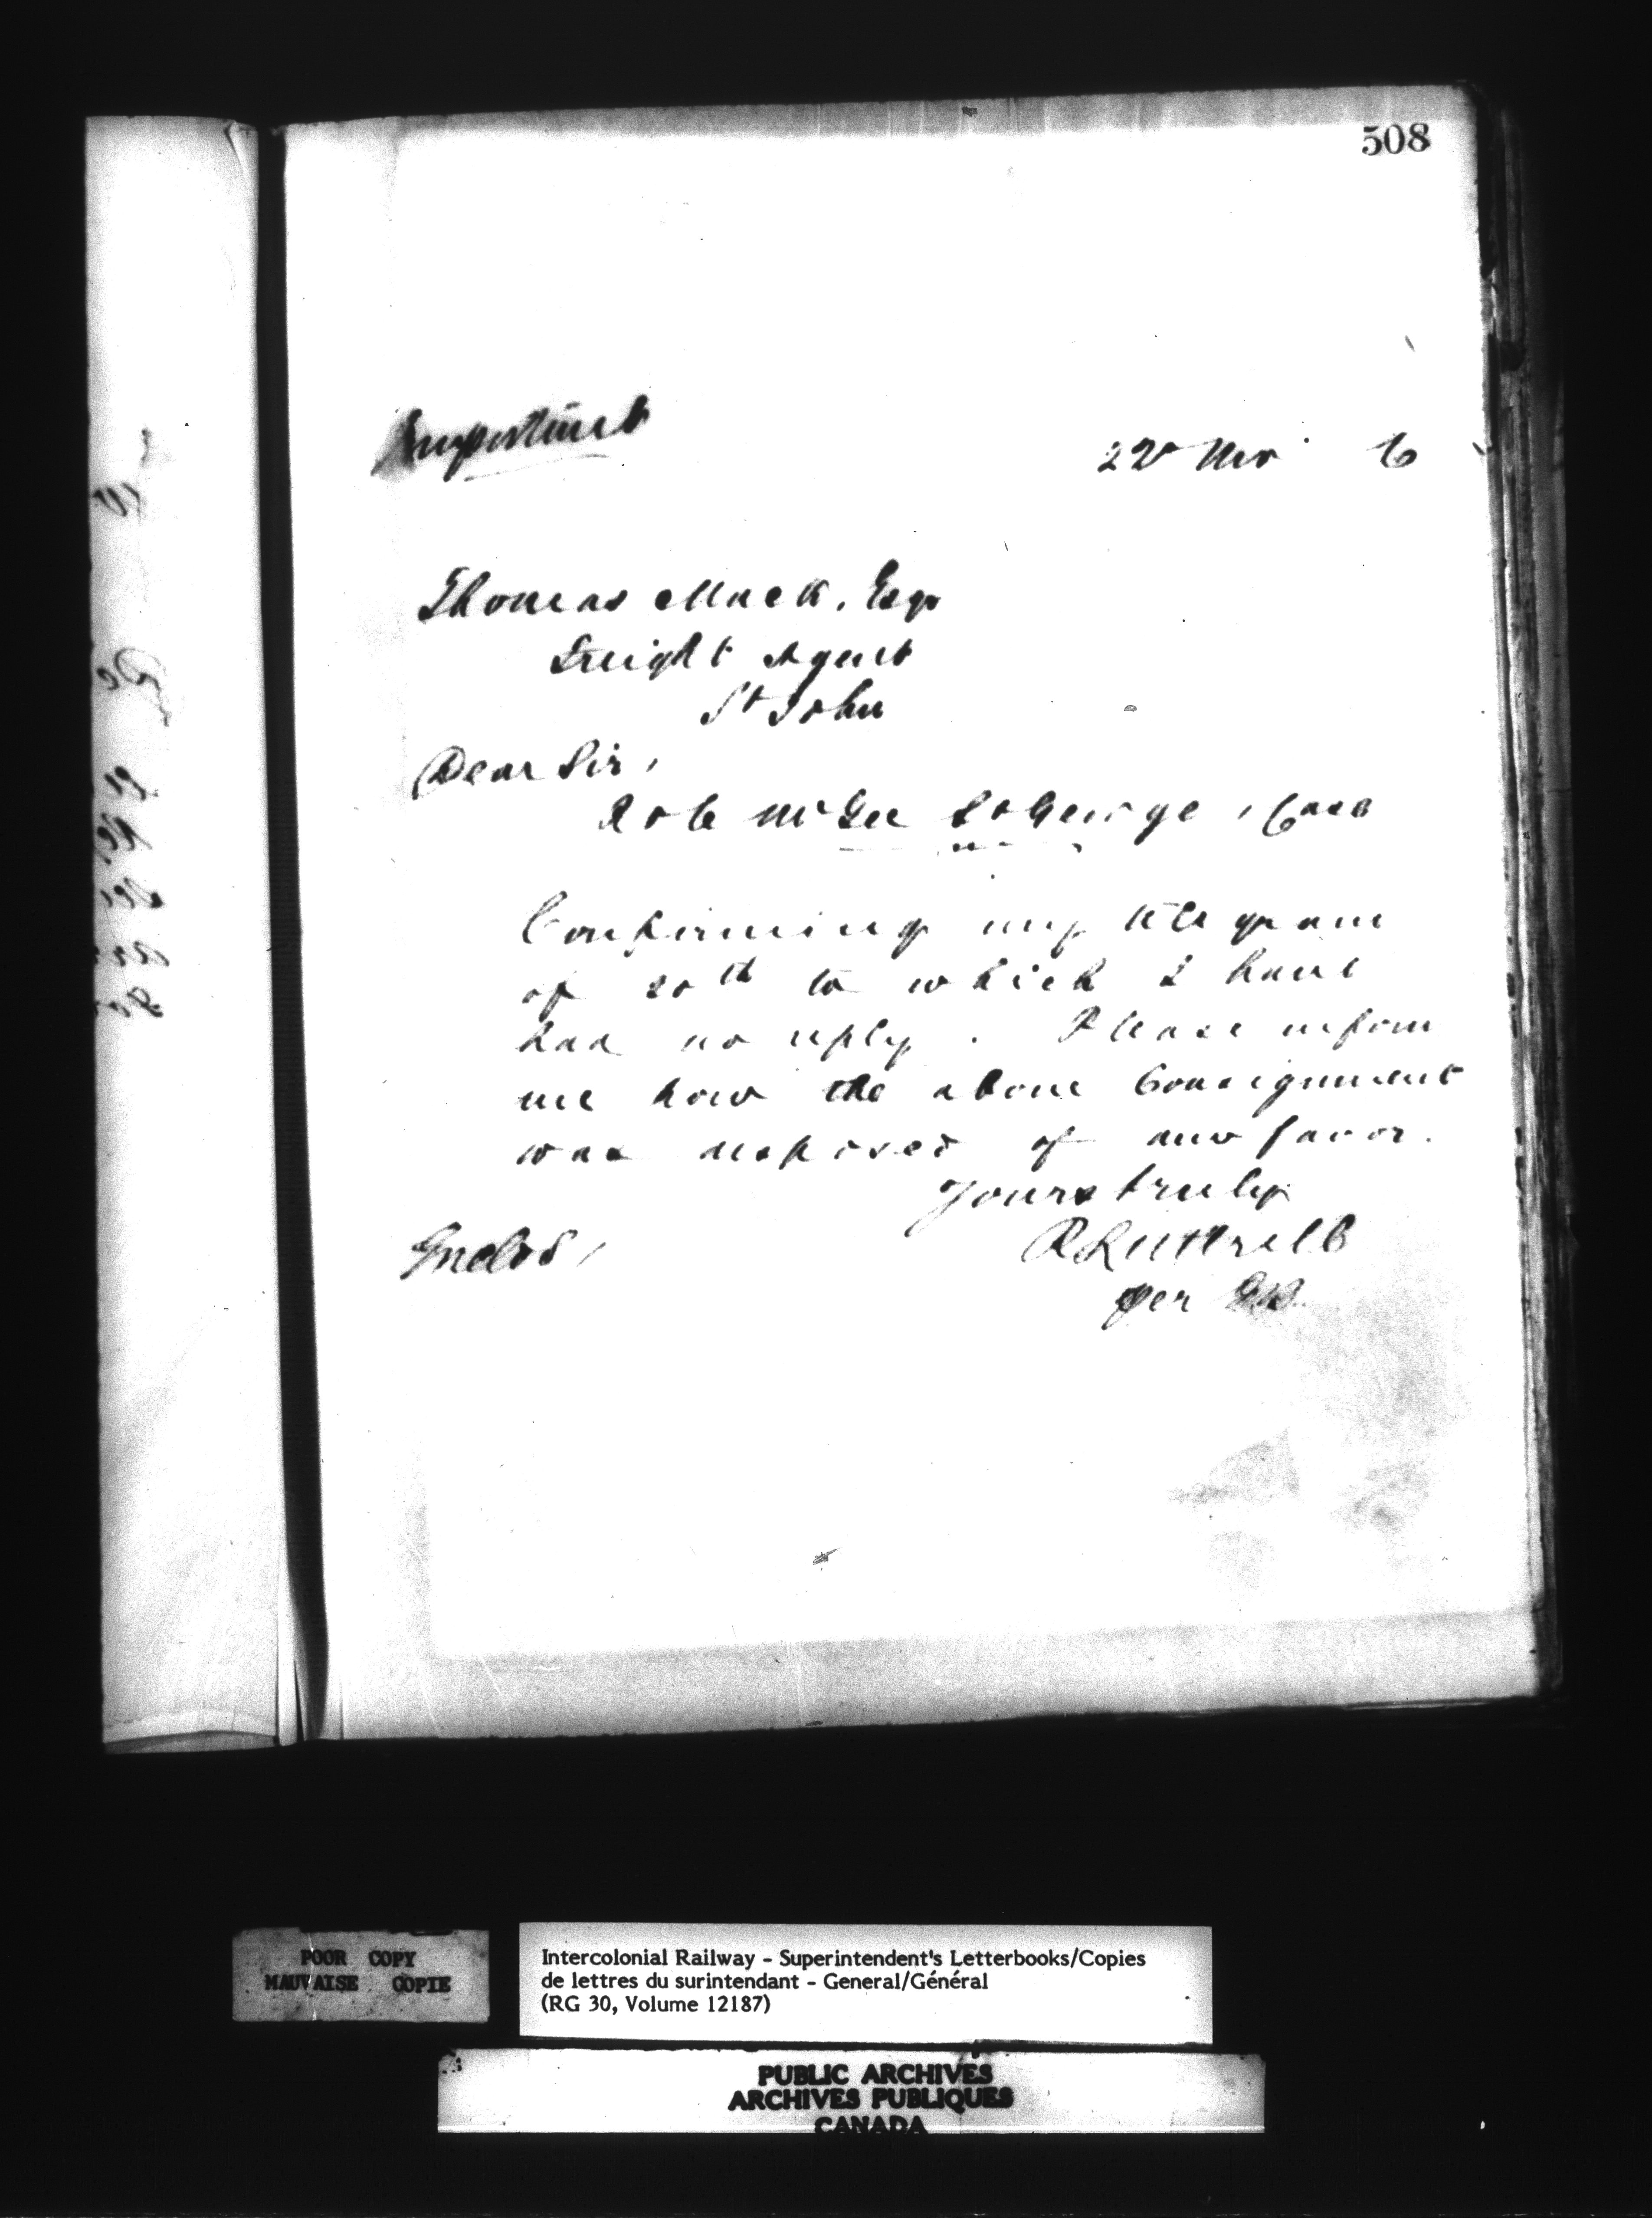 508
Important
22 Nov 6
Thomas Mack, Esqr
Freight Agent
St John
Dear Sir,
Robt McGee St George, 1 Case
Confirming my telegram
of 20th to which I have
had no reply. Please inform
me how the above Consignment
was disposed of and favor.
Yours truly
R Luttrell
per
Enclos,
POOR COPY
MAUVAISE COPIE
Intercolonial Railway - Superintendent's Letterbooks/Copies
de lettres du surintendant - General/Général
(RG 30, Volume 12187)
PUBLIC ARCHIVES
ARCHIVES PUBLIQUES
CANADA